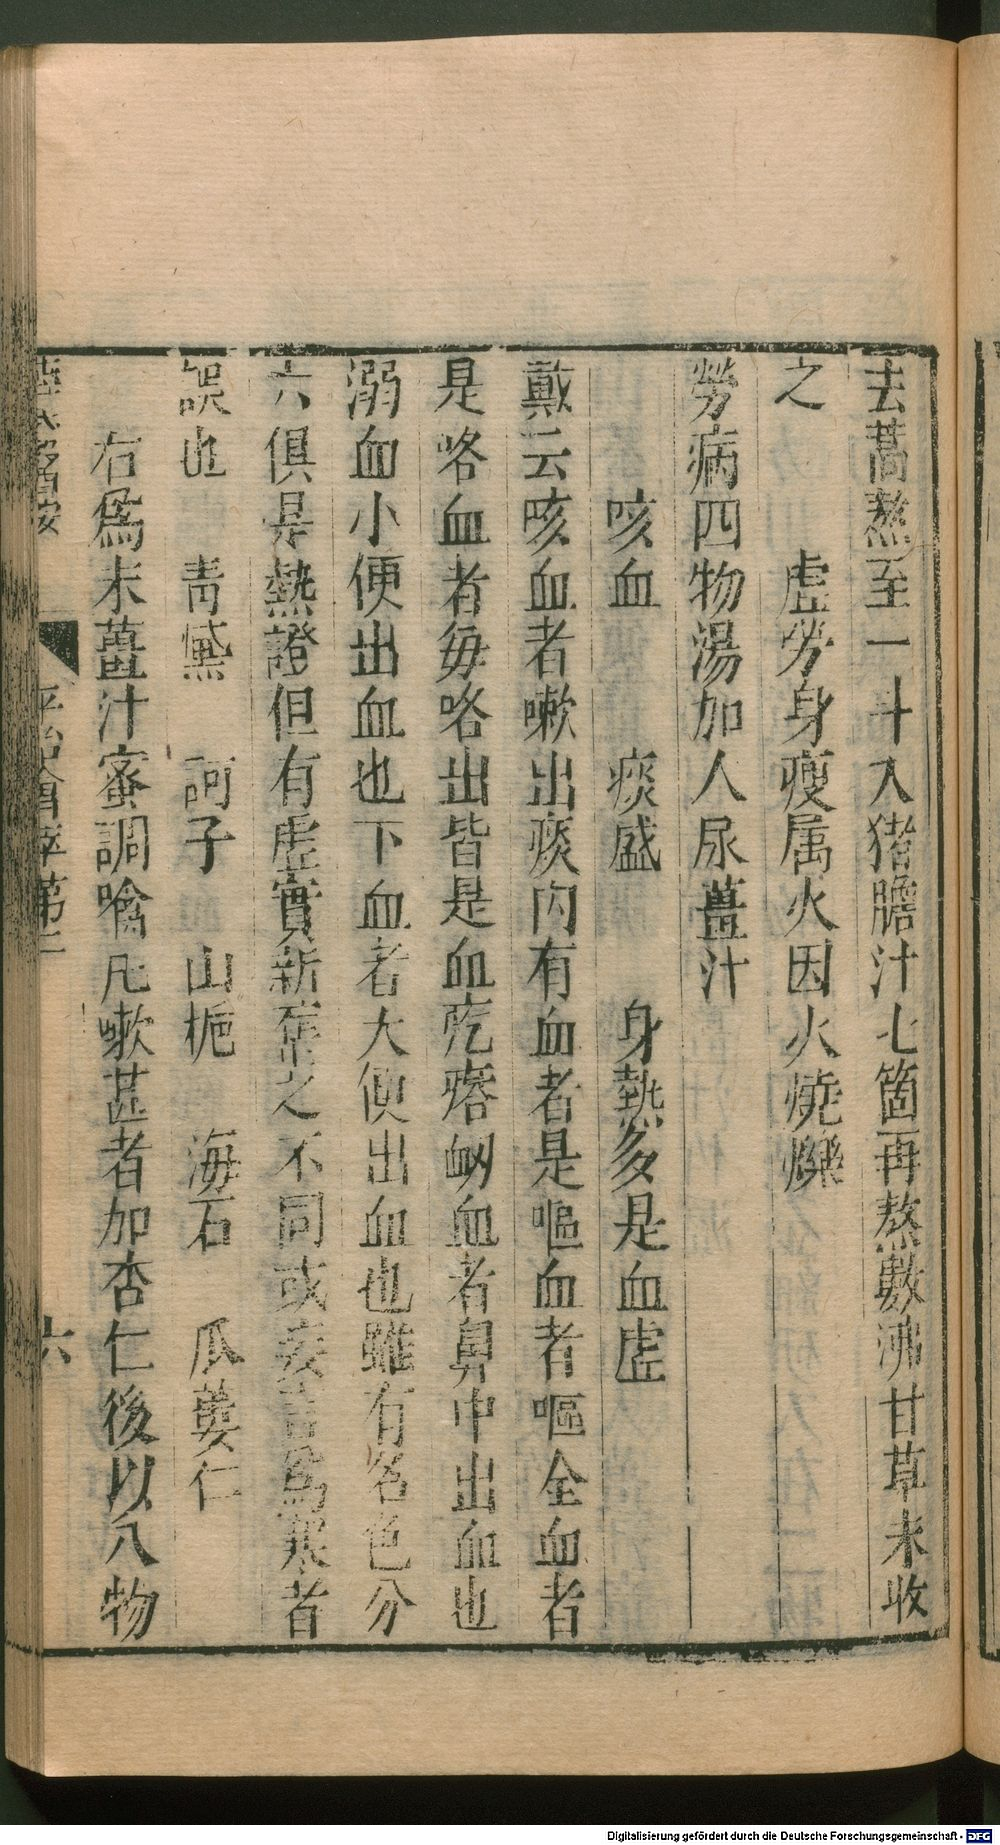 去蒿熬至一斗入猪膽汁七箇再熬數沸甘草末收
之　　虛勞身瘦属火因火燒爍
勞病四物湯加人尿薑汁
咳血　　痰盛　　身熱多是血虛
戴云咳血者嗽出痰內有血者是嘔血者嘔全血者
是咯血者每咯出皆是血疙瘩衂血者鼻中出血也
溺血小便出血也下血者大便出血也雖有名色分
六俱是熱證但有虛實新舊之不同或妄言爲寒者
誤也　靑黛　訶子　山梔　海石　瓜蔞仁
右爲末薑汁蜜調噙凡嗽甚者加杏仁後以八物
平治會萃第二　六
Digitalisierung gefördert durch die Deutsche Forschungsgemeinschaft - DFG